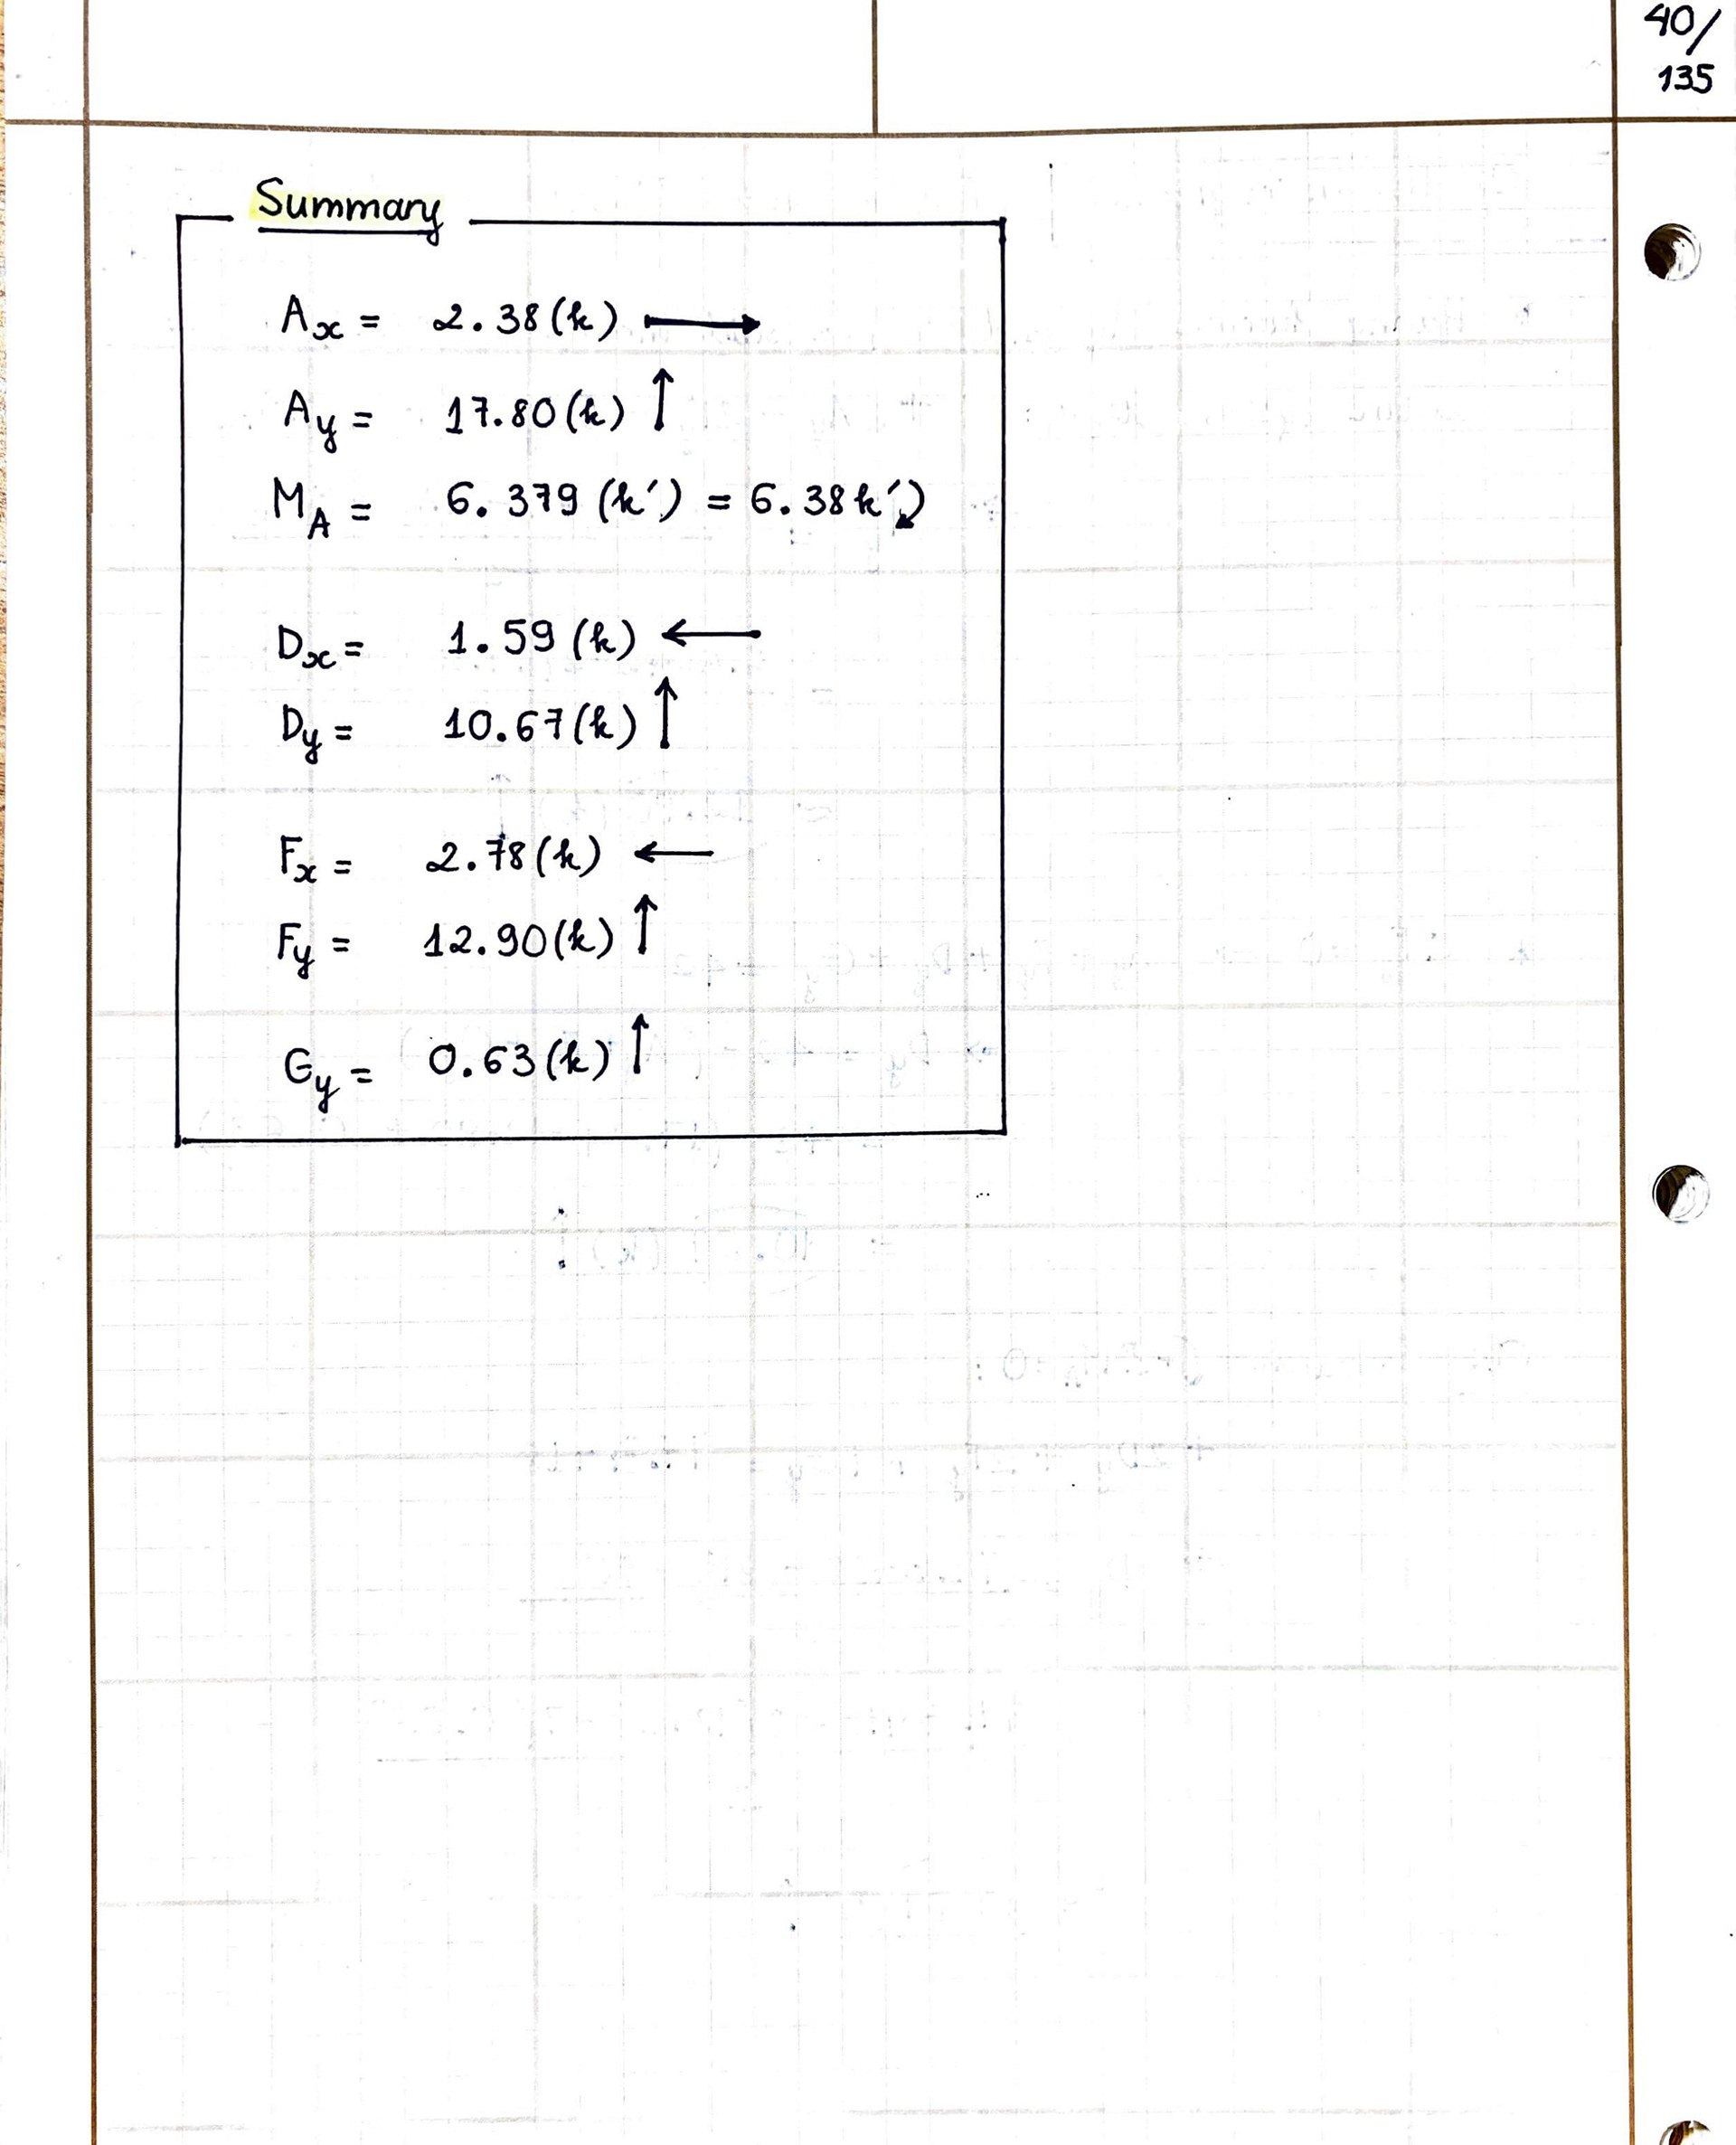 40/
135
Summary
Ax = 2.38 (k) →
Ay = 17.80 (k) ↑
MA = 6.379 (k') = 6.38k' ⤵
Dx = 1.59 (k) ←
Dy = 10.67 (k) ↑
Fx = 2.78 (k) ←
Fy = 12.90 (k) ↑
Gy = 0.63 (k) ↑